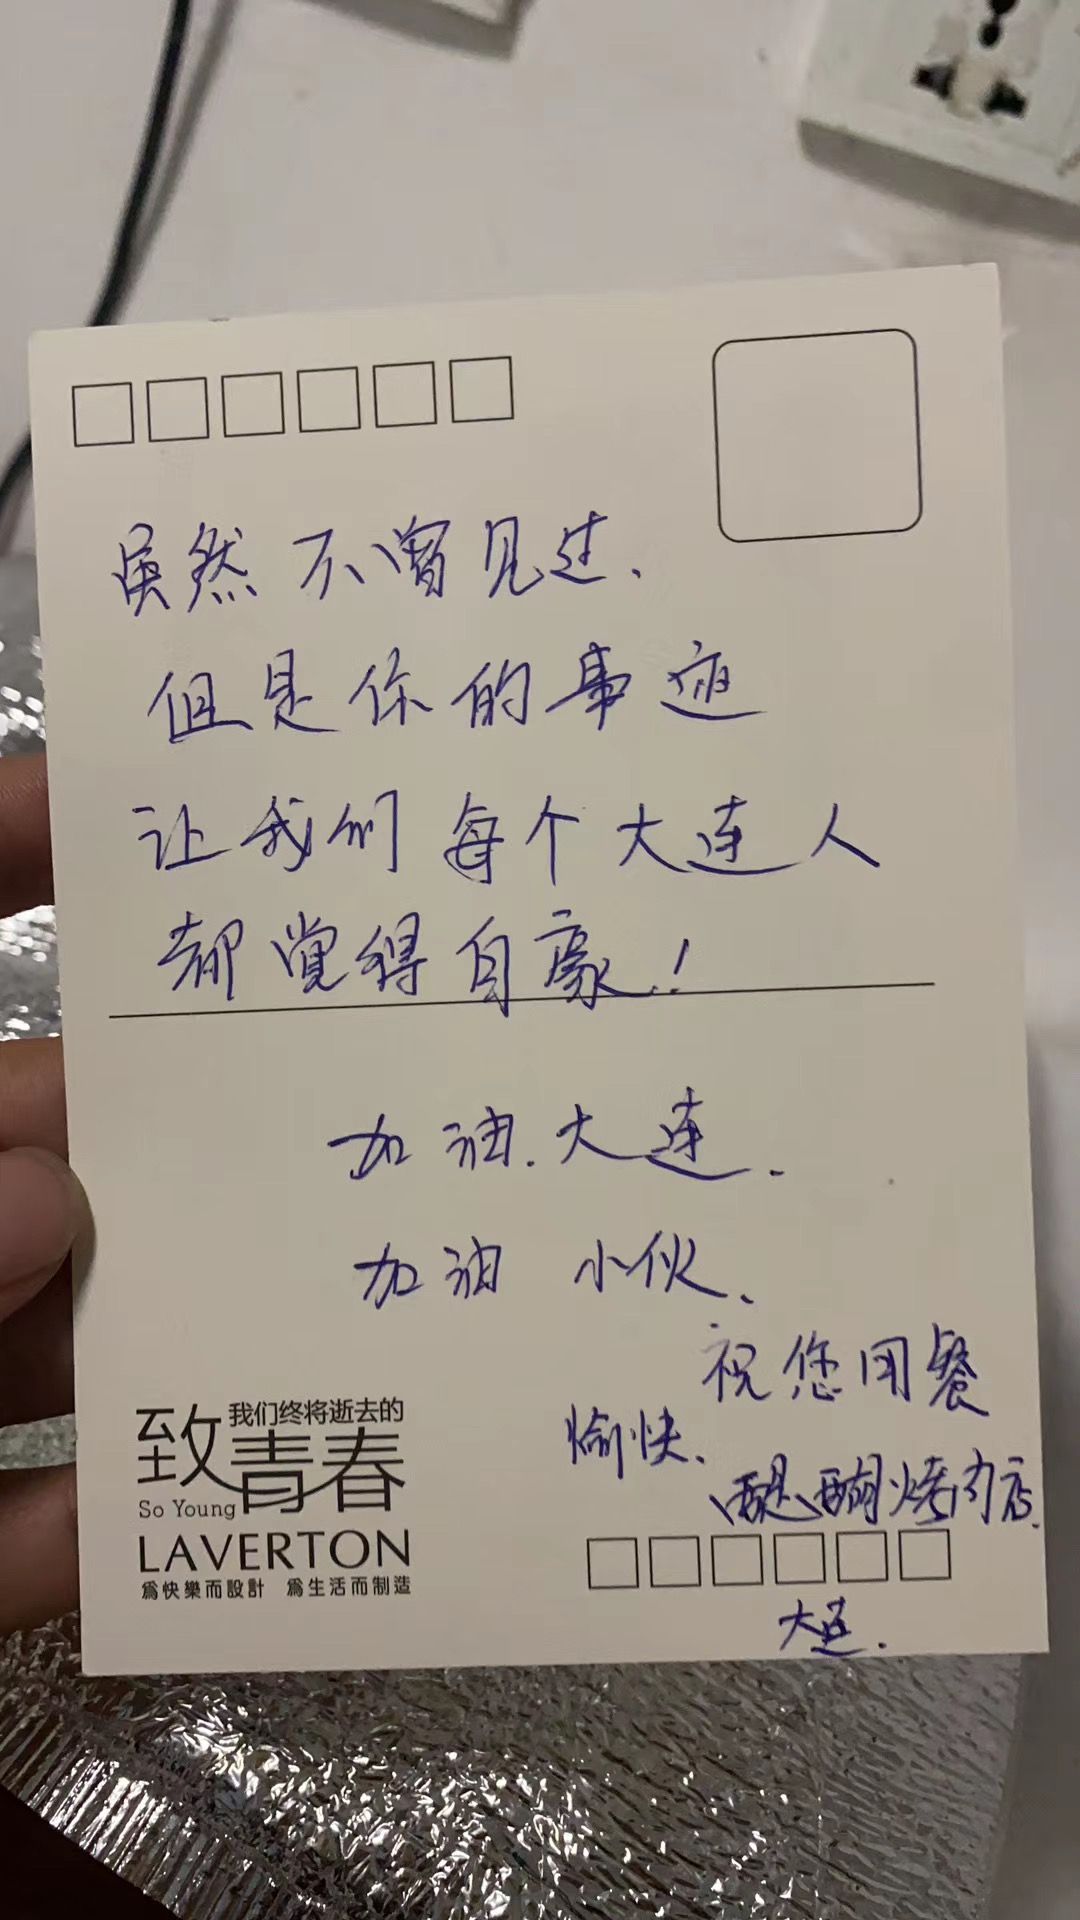 虽然不曾见过、
但是你的事迹
让我们每个大连人
都觉得自豪！
加油.大连.
加油 小伙、
祝您用餐
愉快、
醍醐烤肉店.
大连.
我们终将逝去的
致青春
So Young
LAVERTON
為快樂而設計 為生活而制造